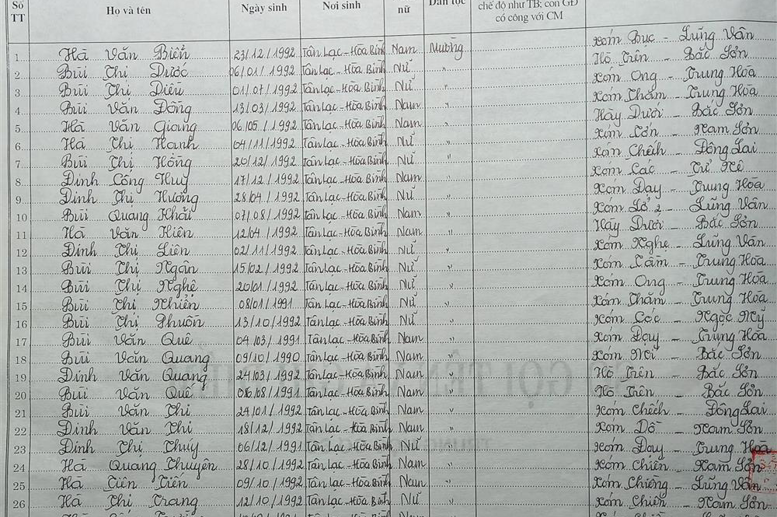 Số TT Họ và tên Ngày sinh Nơi sinh nữ Dân tộc chế độ như TB; con GĐ có công với CM
1 Hà Văn Biển 23/12/1992 Tân Lạc-Hòa Bình Nam Mường Xóm Bục - Lũng Vân
2 Bùi Thị Dược 06/01/1992 Tân Lạc-Hòa Bình Nữ " Hò Trên - Bắc Sơn
3 Bùi Thị Diệu 01/07/1992 Tân Lạc-Hòa Bình Nữ " Xóm Ong - Trung Hòa
4 Bùi Văn Đông 13/03/1992 Tân Lạc-Hòa Bình Nam " Xóm Thăm - Trung Hòa
5 Hà Văn Giang 06/05/1992 Tân Lạc-Hòa Bình Nam " Hày Dưới - Bắc Sơn
6 Hà Thị Hạnh 04/11/1992 Tân Lạc-Hòa Bình Nữ " Xóm - Nam Sơn
7 Bùi Thị Hồng 20/12/1992 Tân Lạc-Hòa Bình Nữ " Xóm Chếch - Đông Lai
8 Đinh Công Huy 17/12/1992 Tân Lạc-Hòa Bình Nam " Xóm Các -
9 Đinh Thị Hương 28/04/1992 Tân Lạc-Hòa Bình Nữ " Xóm Dạy - Trung Hòa
10 Bùi Quang Khải 07/08/1992 Tân Lạc-Hòa Bình Nam " Xóm Sở 2 - Lũng Vân
11 Hà Văn Hiên 12/04/1992 Tân Lạc-Hòa Bình Nam " Hày Dưới - Bắc Sơn
12 Đinh Thị Liên 02/11/1992 Tân Lạc-Hòa Bình Nữ " Xóm Nghẹ - Lũng Vân
13 Bùi Thị Ngân 15/02/1992 Tân Lạc-Hòa Bình Nữ " Xóm - Trung Hòa
14 Bùi Thị Nghê 20/01/1992 Tân Lạc-Hòa Bình Nữ " Xóm Ong - Trung Hòa
15 Bùi Thị Nhiên 08/01/1991 Tân Lạc-Hòa Bình Nữ " Xóm Thăm - Trung Hòa
16 Bùi Thị Phuôn 13/10/1992 Tân Lạc-Hòa Bình Nữ " Xóm Cóc - Ngọc Mỹ
17 Bùi Văn Quê 04/03/1991 Tân Lạc-Hòa Bình Nam " Xóm Dạy - Trung Hòa
18 Bùi Văn Quang 09/10/1990 Tân Lạc-Hòa Bình Nam " Xóm - Bắc Sơn
19 Đinh Văn Quang 24/03/1992 Tân Lạc-Hòa Bình Nam " Hò Trên - Bắc Sơn
20 Bùi Văn Quế 06/08/1991 Tân Lạc-Hòa Bình Nam " Hò Trên - Bắc Sơn
21 Bùi Văn Thi 24/01/1992 Tân Lạc-Hòa Bình Nam " Xóm Chếch - Đông Lai
22 Đinh Văn Thi 18/12/1992 Tân Lạc-Hòa Bình Nam " Xóm Dồ - Nam Sơn
23 Đinh Thị Thúy 06/12/1991 Tân Lạc-Hòa Bình Nữ " Xóm Dạy - Trung Hòa
24 Hà Quang Thuyên 28/10/1992 Tân Lạc-Hòa Bình Nam " Xóm Chiên - Nam Sơn
25 Hà Tiến Tiến 09/10/1992 Tân Lạc-Hòa Bình Nam " Xóm Chiềng - Lũng Vân
26 Hà Thị Trang 12/10/1992 Tân Lạc-Hòa Bình Nữ " Xóm Chiên - Nam Sơn